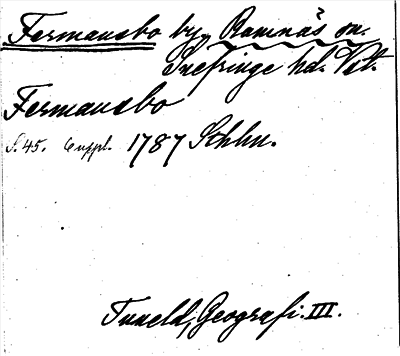 Fermansbo by, Ramnäs sn.
Snefringe hd. Vstm.
Fermansbo
S. 45. Cuppl. 1787 Sthlm.
Tuneld, Geografi. III.